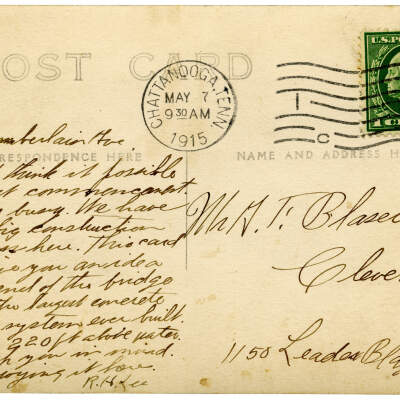 POST CARD
U.S. PO
CHATTANOOGA, TENN.
MAY 7
9 30 AM
1915
1
C
RESPONDENCE HERE
NAME AND ADDRESS H
mberlain Ave
think it possible
t commencement
busy. We have
big construction
s here. This card
ve you an idea
end of the bridge
the largest concrete
system ever built.
220 ft above water.
h you in mind.
oying it here.
R.H. Lee
Mr H. T. Blase
Cleve
1150 Leader Bldg